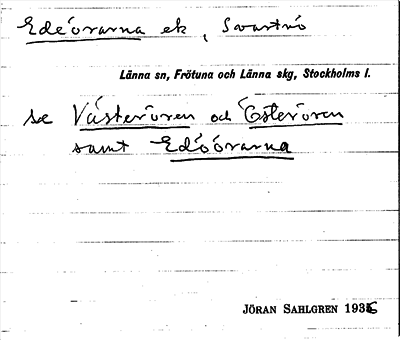 Edeörarna ek, Svartnö
Länna sn, Frötuna och Länna skg, Stockholms l.
se Västerören och Österören
samt Edöörarna
JÖRAN SAHLGREN 1936